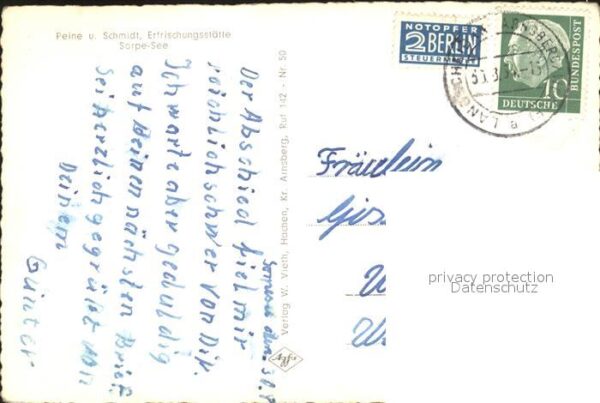 Peine u. Schmidt, Erfrischungsstätte
Sorpe-See
den 30.8.
Der Abschied fiel mir
reichlich schwer von Dir.
Ich warte aber geduldig
auf Deinen nächsten Brief.
Sei herzlich gegrüßt von
Deinem
Günter
Verlag W. Vieth, Hachen, Kr. Arnsberg, Ruf 142 - Nr 50
NOTOPFER
2 BERLIN
STEUERMARKE
ARNSBERG
LANG
10
DEUTSCHE
BUNDESPOST
Fräulein
Gis
W
W
privacy protection
Datenschutz